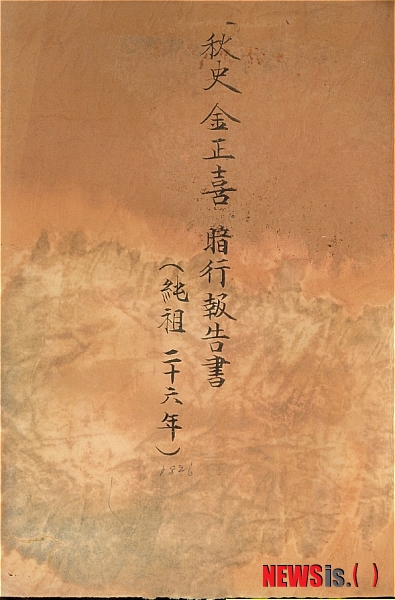 秋史 金正喜 暗行報告書
(純祖 二十六年)
1826
NEWSis.( )